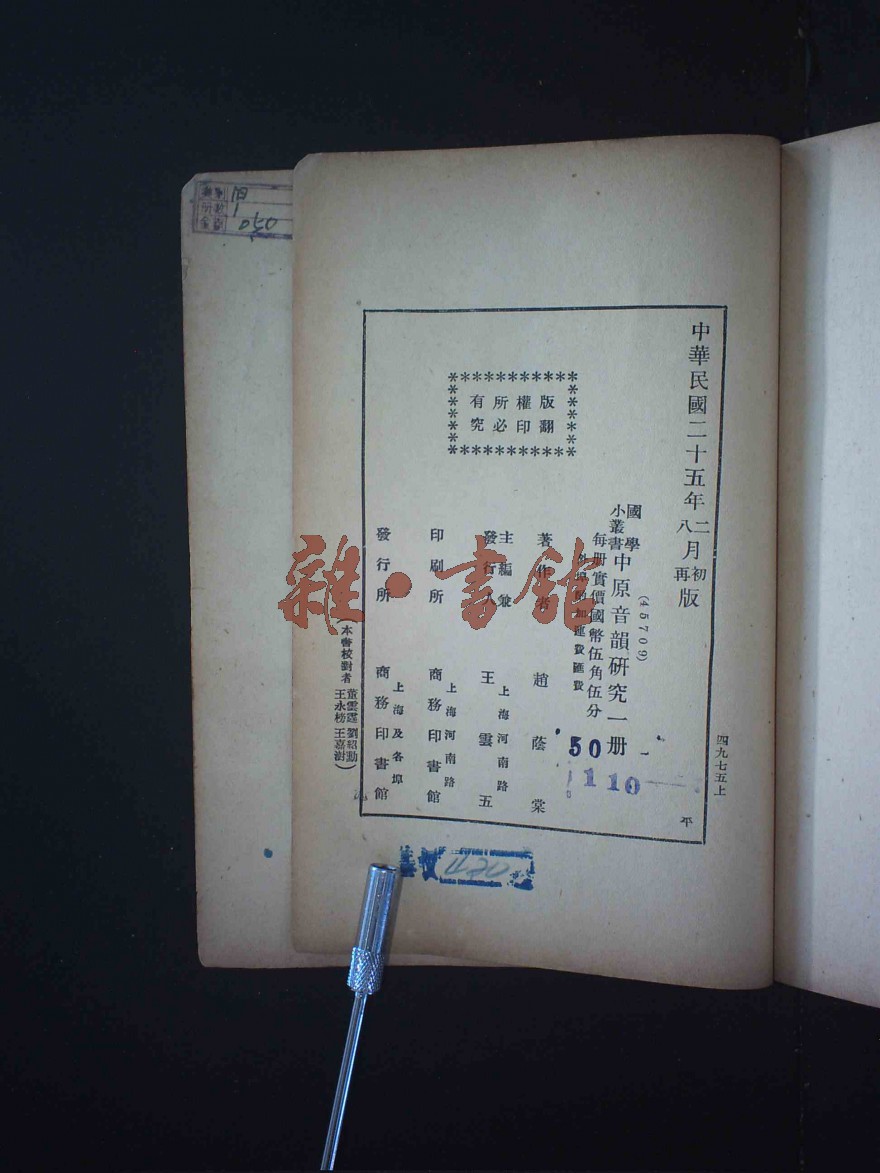 中華民國二十五年二月初版
八月再版
四九七五上
(45709)
國學小叢書
中原音韻研究一册
每册實價國幣伍角伍分
外埠酌加運費匯費
50
110
版權所有
翻印必究
著作者 趙蔭棠
主編兼發行人 王雲五
上海河南路
印刷所 商務印書館
上海河南路
發行所 商務印書館
上海及各埠
(本書校對者 董雲達 劉紹勳 王永榜 王嘉澍)
平
雜·書館